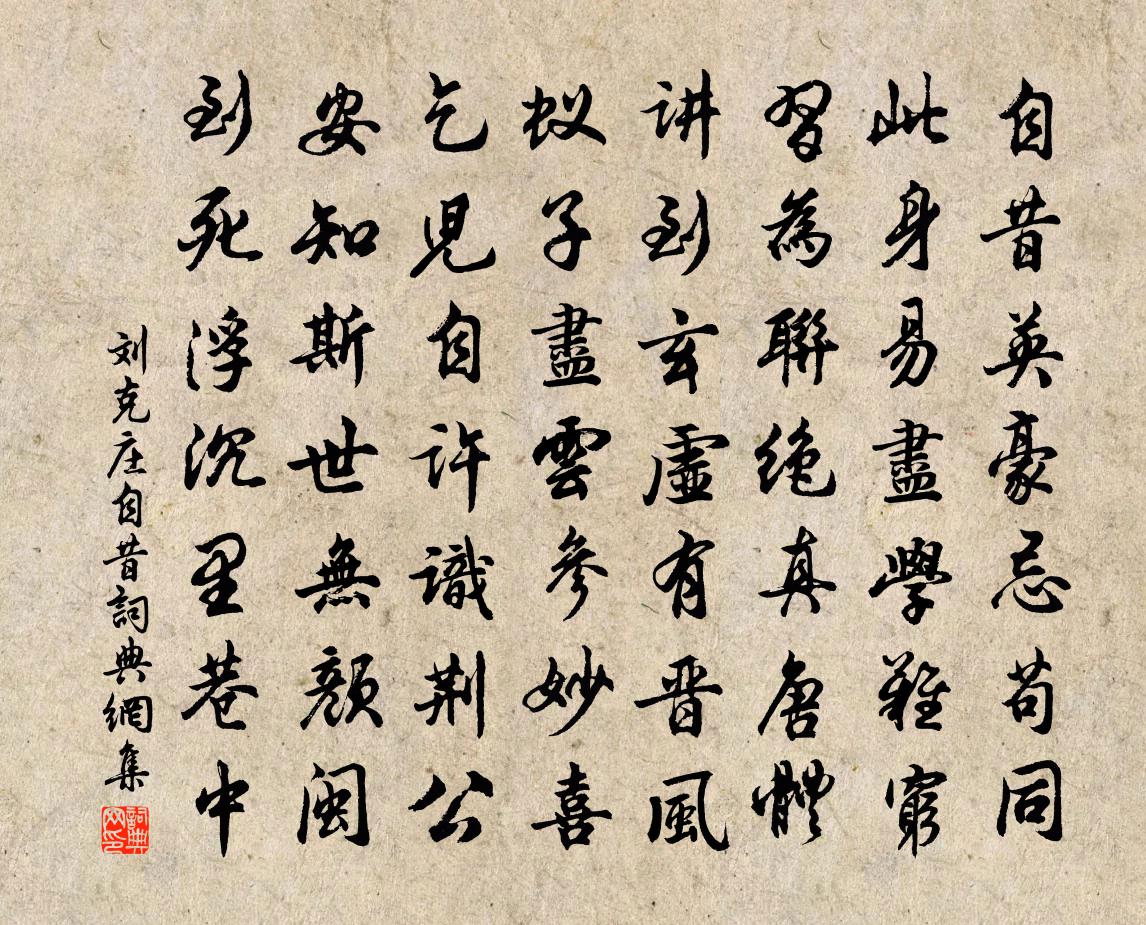 自昔英豪忌苟同
此身易盡學難窮
習為聯絶真唐體
讲到玄虛有晋風
蚁子盡雲參妙喜
乞児自许識荆公
安知斯世無顔闽
到死浮沉里巷中
刘克庄自昔詞典網集
詞典网印